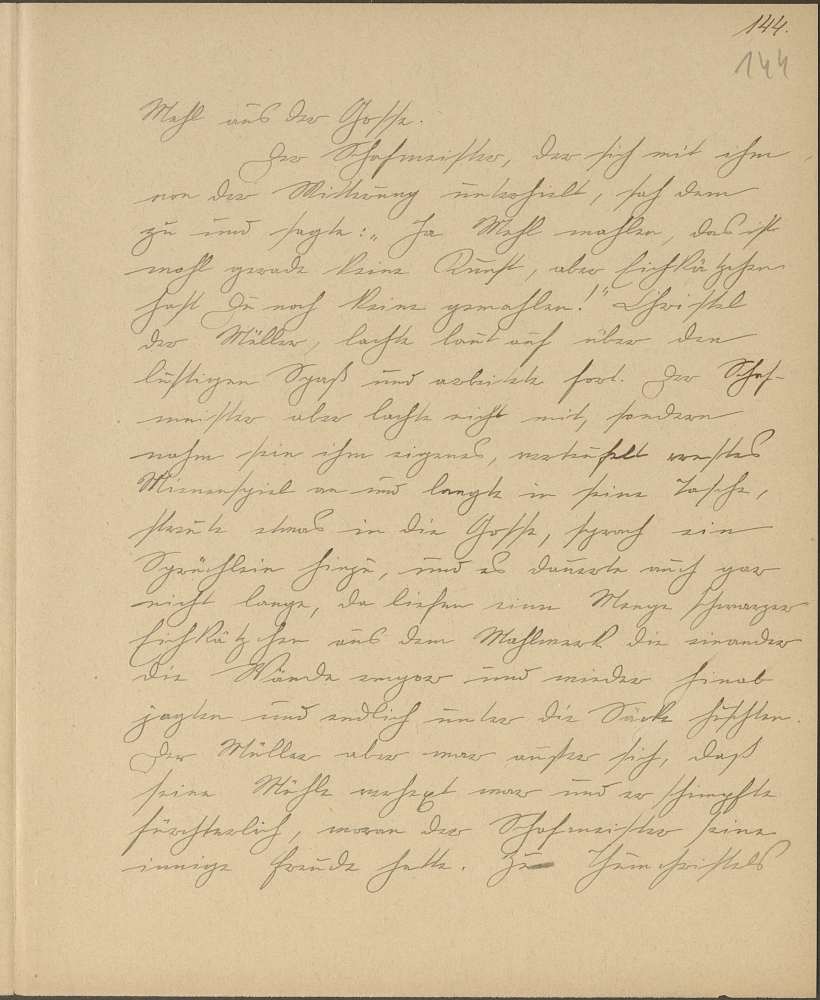 144.
144
Mehl aus der Gosse.
Der Schafmeister, der sich mit ihm
von der Witterung unterhielt, sah dem
zu und sagte: „Ja Mehl mahlen, das ist
wohl gerade keine Kunst, aber Eichkätzchen
hast Du noch keine gemahlen!" Christel
der Müller, lachte laut auf über den
lustigen Spaß und arbeitete fort. Der Schaf-
meister aber lachte nicht mit, sondern
nahm sein ihm eigenes, verteufelt
Mienenspiel an und langte in seine Tasche,
streute etwas in die Gosse, sprach ein
Sprüchlein hinzu, und es dauerte auch gar
nicht lange, da liefen eine Menge schwarzer
Eichkätzchen aus dem Mahlwerk die einander
die Wände empor und wieder hinab
jagten und endlich unter die Säcke huschten.
Der Müller aber war außer sich, daß
seine Mühle verhext war und er schimpfte
fürchterlich, woran der Schafmeister seine
innige Freude hatte. Zu